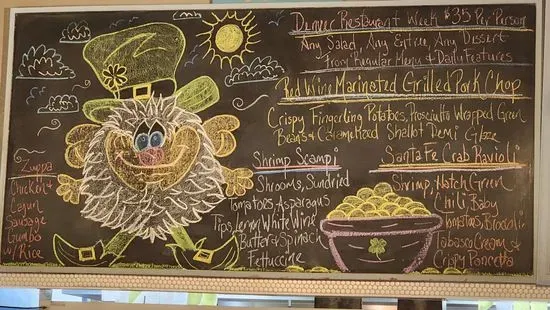 Denver Restaurant Week $35 Per Person
Any Salad, Any Entree, Any Dessert
from Regular Menu & Daily Features
Red Wine Marinated Grilled Pork Chop
Crispy Fingerling Potatoes, Prosciutto Wrapped Green
Beans & Caramelized Shallot Demi Glaze
Zuppa
Chicken &
Cajun
Sausage
Gumbo
w/ Rice
Shrimp Scampi
Shrooms, Sundried
Tomatoes, Asparagus
Tips, Lemon, White Wine
Butter & Spinach
Fettuccine
Santa Fe Crab Ravioli
Shrimp, Hatch Green
Chili, Baby
Tomatoes, Broccoli
Tobasco Cream &
Crispy Pancetta